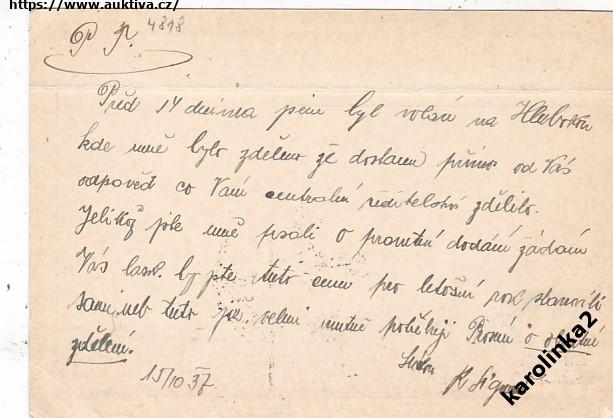 https://www.auktiva.cz/
P. P. 4818
Před 14 dněma jsem byl volán na Hlubokou
kde mně bylo zděleno že dostanu přímo od Vás
odpověď co Vám centrální ředitelství zdělilo.
Jelikož jste mně psali o promtní dodání žádám
Vás lask. by jste tuto cenu pro letošní rok stanovili
sami, neb tuto již velmi nutně potřebuji Prosím o
zdělení.
15/10 37
K.
karolinka2